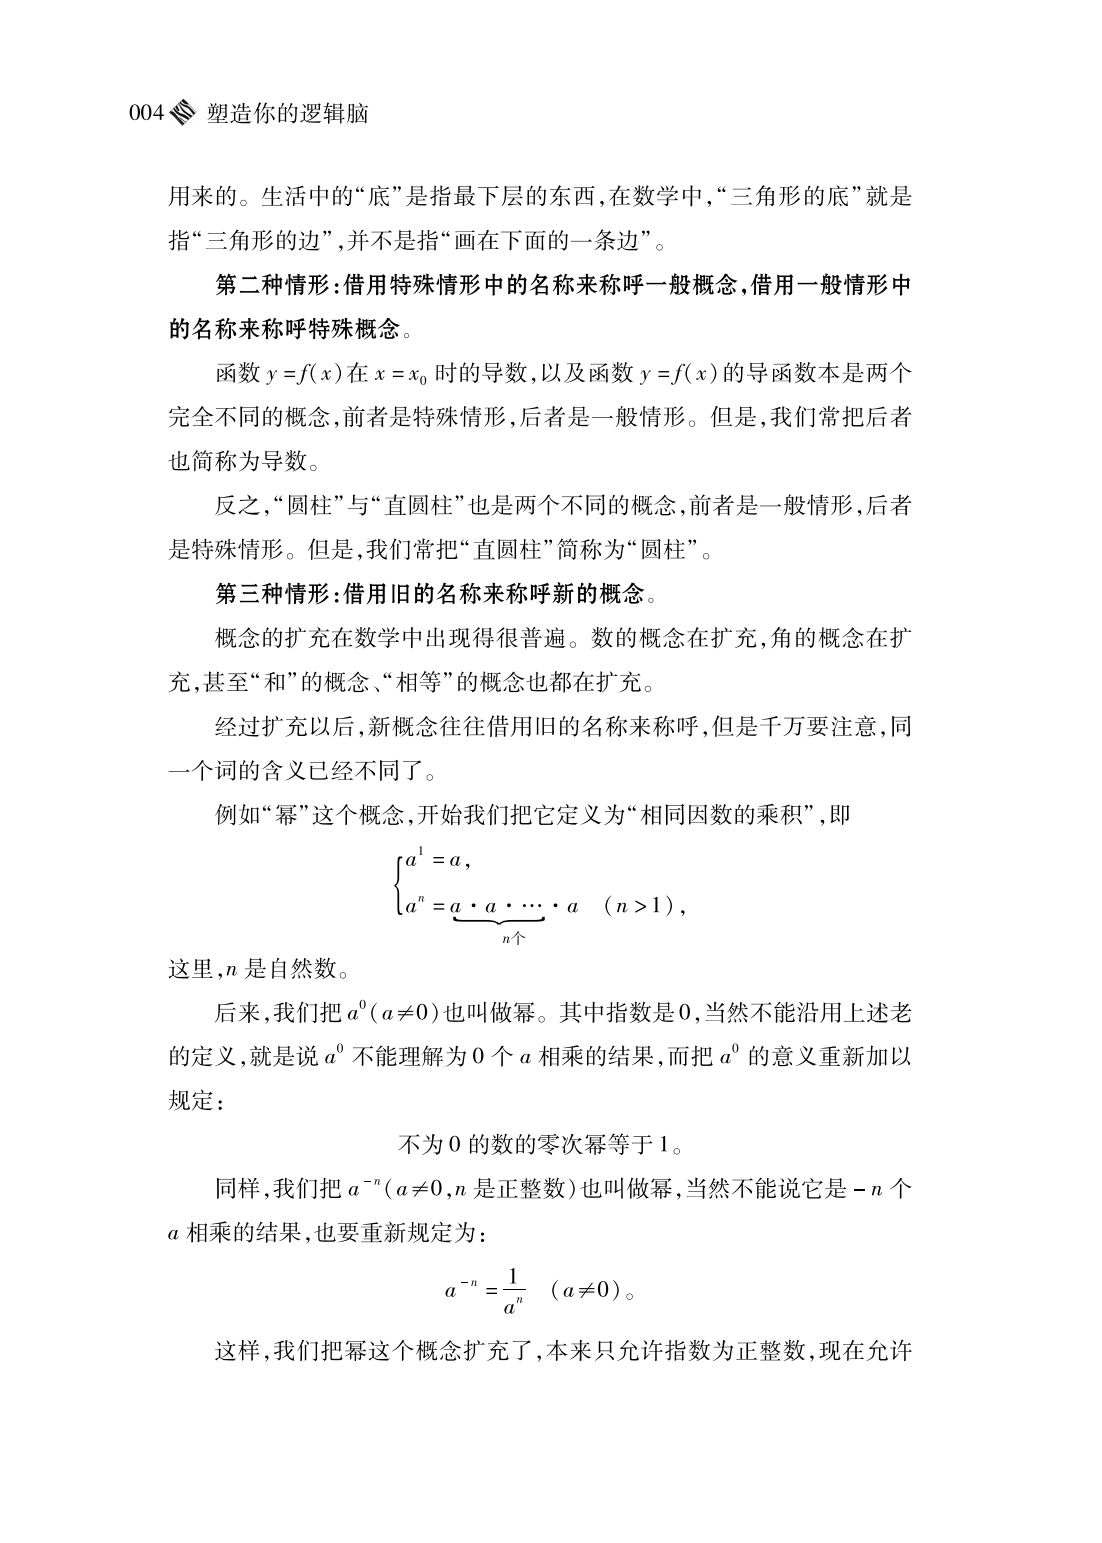 004 塑造你的逻辑脑
用来的。生活中的“底”是指最下层的东西,在数学中,“三角形的底”就是
指“三角形的边”,并不是指“画在下面的一条边”。
第二种情形:借用特殊情形中的名称来称呼一般概念,借用一般情形中
的名称来称呼特殊概念。
函数 y=f(x)在 x=x₀ 时的导数,以及函数 y=f(x)的导函数本是两个
完全不同的概念,前者是特殊情形,后者是一般情形。但是,我们常把后者
也简称为导数。
反之,“圆柱”与“直圆柱”也是两个不同的概念,前者是一般情形,后者
是特殊情形。但是,我们常把“直圆柱”简称为“圆柱”。
第三种情形:借用旧的名称来称呼新的概念。
概念的扩充在数学中出现得很普遍。数的概念在扩充,角的概念在扩
充,甚至“和”的概念、“相等”的概念也都在扩充。
经过扩充以后,新概念往往借用旧的名称来称呼,但是千万要注意,同
一个词的含义已经不同了。
例如“幂”这个概念,开始我们把它定义为“相同因数的乘积”,即
a¹=a,
aⁿ=a·a·…·a (n>1),
n个
这里,n 是自然数。
后来,我们把 a⁰(a≠0)也叫做幂。其中指数是0,当然不能沿用上述老
的定义,就是说 a⁰ 不能理解为 0 个 a 相乘的结果,而把 a⁰ 的意义重新加以
规定:
不为 0 的数的零次幂等于 1。
同样,我们把 a⁻ⁿ(a≠0,n 是正整数)也叫做幂,当然不能说它是 -n 个
a 相乘的结果,也要重新规定为:
a⁻ⁿ=1/aⁿ (a≠0)。
这样,我们把幂这个概念扩充了,本来只允许指数为正整数,现在允许